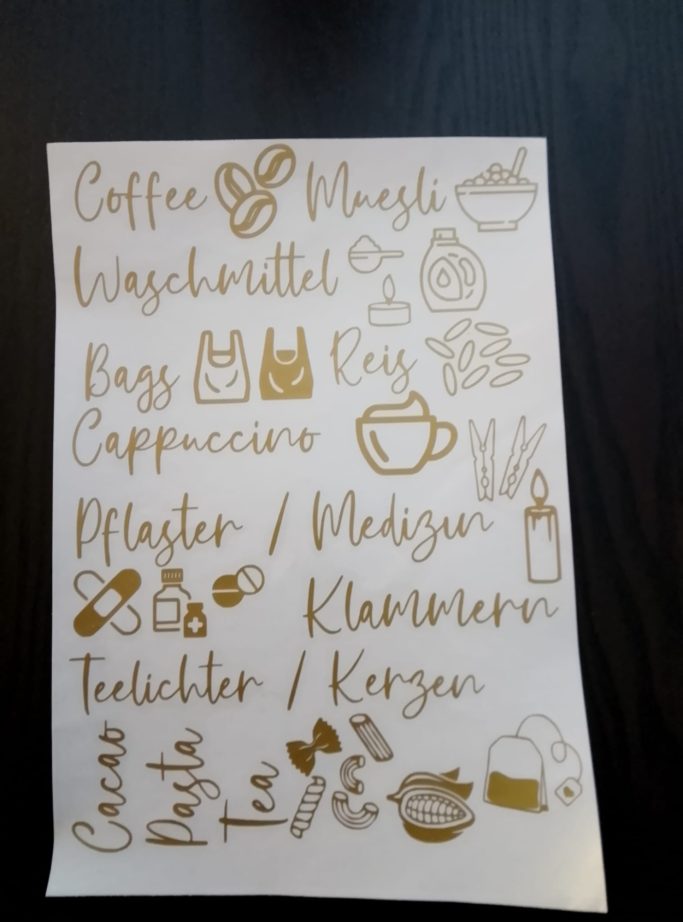 Coffee Muesli
Waschmittel
Bags Reis
Cappuccino
Pflaster / Medizin
Klammern
Teelichter / Kerzen
Cacao
Pasta
Tea